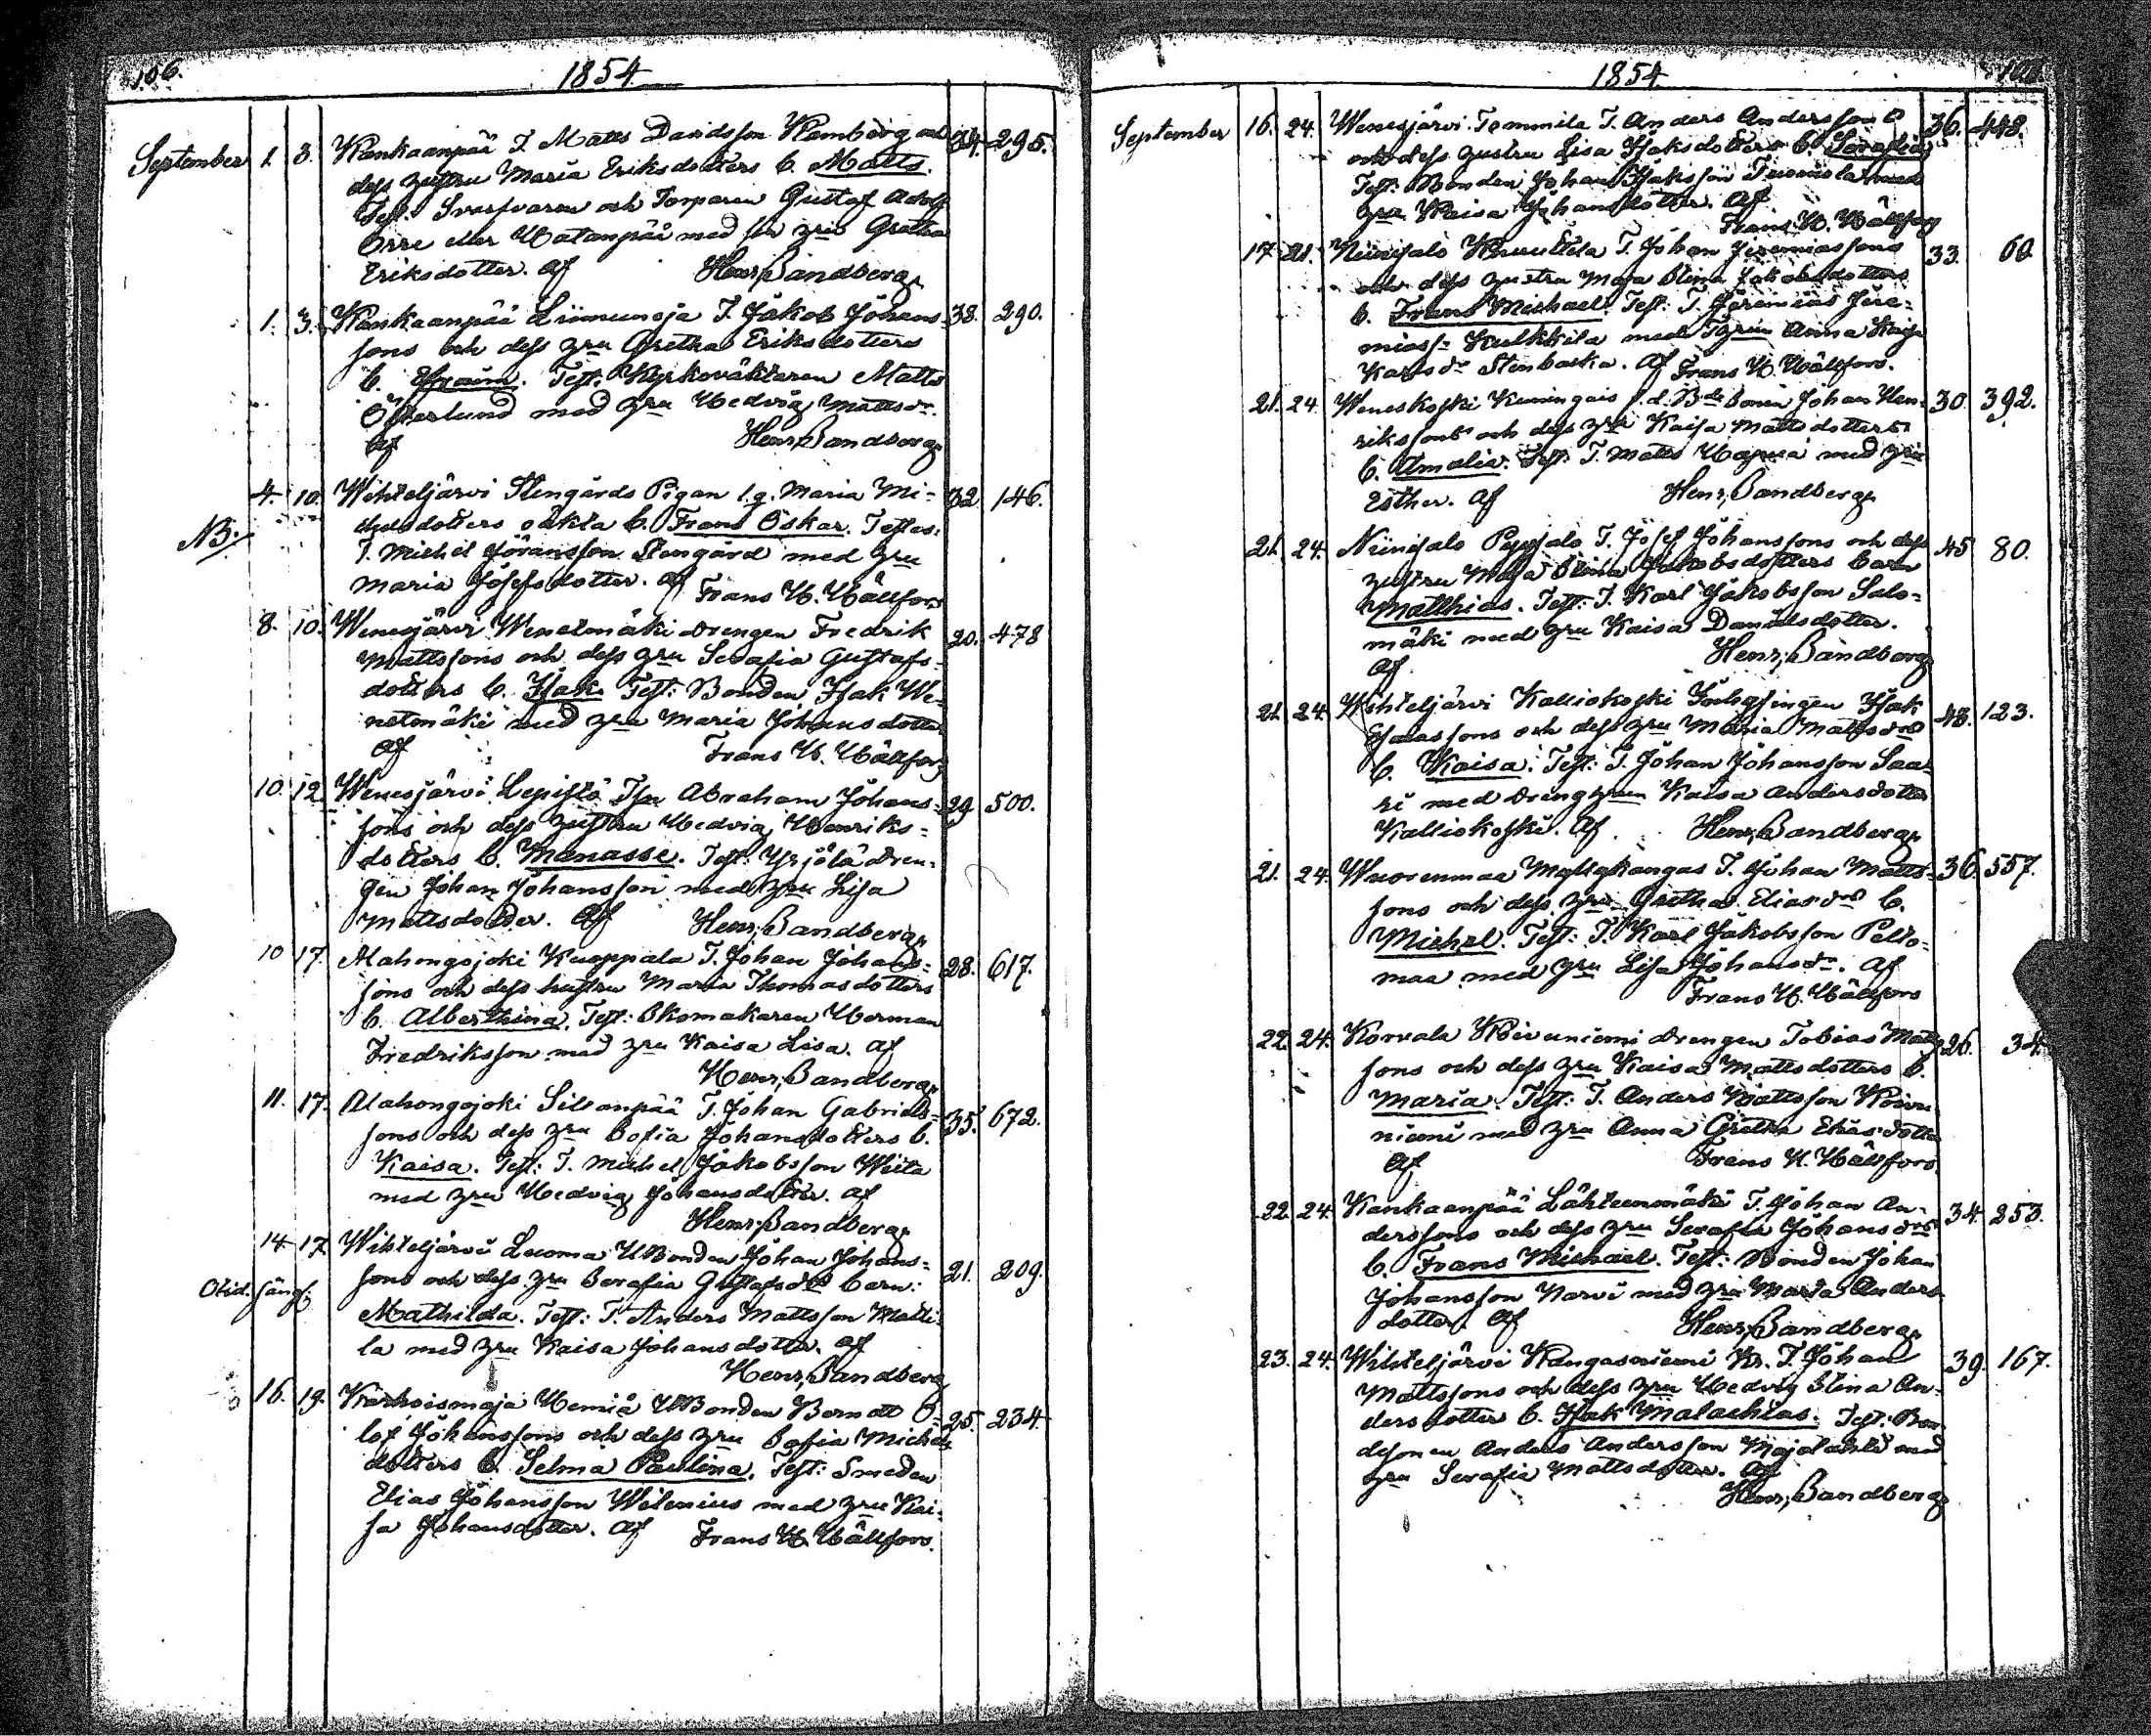 106.
1854
September 1. 3. Kankaanpää T. Matts Davidsson Kamberg och 34. 295.
dess hustru Maria Eriksdotters b. Matts.
Test: Svarfvaren och Torparen Gustaf Adolf
Orre eller Hatanpää med sin hru Gretha
Eriksdotter. Af Henr. Sandberg
1. 3. Kankaanpää Liimunoja T. Jakob Johans- 38. 290.
sons och dess hru Gretha Eriksdotters
b. Efraim. Test. Kyrkoväktaren Matts
Österlund med hru Hedvig Mattsdr.
Af Henr. Sandberg
4. 10. Wihteljärvi Stengårds Pigan l.g. Maria Mi- 32. 146.
chelsdotters oäkta b. Frans Oskar. Testes:
NB:
T. Michel Göransson Stengård med hru
Maria Josefsdotter. af Frans H. Hällfors
8. 10. Wenesjärvi Wenetmäki drengen Fredrik 20. 478
Mattssons och dess hru Serafia Gustafs-
dotters b. Isak. Test: Bonden Isak We-
netmäki med hru Maria Johansdotter
Af Frans H. Hällfors
10. 12. Wenesjärvi Lepistö Tsn Abraham Johans- 29. 500.
sons och dess hustru Hedvig Henriks-
dotters b. Manasse. Test: Yrjölä dren-
gen Johan Johansson med hru Lisa
Mattsdotter. Af Henr. Sandberg
10 17. Alahongojoki Kuoppala T. Johan Johans- 28. 617.
sons och dess hustru Maria Thomasdotters
b. Alberthina. Test: Skomakaren Herman
Fredriksson med hru Kaisa Lisa. af
Henr. Sandberg
11. 17. Alahongojoki Sillanpää T. Johan Gabriels- 35. 672.
sons och dess hru Sofia Johansdotters b.
Kaisa. Test: T. Michel Jakobsson Wiita
med hru Hedvig Johansdotter. af
Henr. Sandberg
14. 17. Wihteljärvi Luoma UBonden Johan Johans- 21. 209.
sons och dess hru Serafia Gustafsdrs barn:
Mathilda. Test: T. Anders Mattsson Matti-
la med hru Kaisa Johansdotter. af
Henr. Sandberg
16. 19. Karhoismaja Hemiä UBonden Berndt O- 25. 234.
lof Johanssons och dess hru Sofia Michels
dotters b. Selma Paulina. Test: Smeden
Elias Johansson Wilenius med hru Kai-
sa Johansdotter. af Frans H. Hällfors.
1854
September 16. 24. Wenesjärvi Tommila T. Anders Anderssons 36. 448.
och dess hustru Lisa Isaksdotters b. Serafia
Test: Bonden Johan Isaksson Tuomola med
hru Kaisa Johansdotter. Af
Frans H. Hällfors
17. 21. Niinisalo Kruukila T. Johan Jeremiassons 33. 60.
och dess hustru Maja Stina Jakobsdotters
b. Frans Michael. Test: T. Jeremias Jere-
miass. Kulkkila med Thrun Anna Kajsa
Karlsdr Stenbacka. Af Frans H. Hällfors.
21. 24. Weneskoski Kuningais f.d. Bdesonen Johan Hen- 30. 392.
rikssons och dess hru Kaisa Mattsdotters
b. Amalia. Test: T. Matts Hapua med hru
Esther. Af Henr. Sandberg
21. 24. Niinisalo Pappsalo T. Josef Johanssons och dess 45 80.
hustru Maja Stina Jakobsdotters barn
Matthias. Test: T. Karl Jakobsson Salo-
mäki med hru Kaisa Danielsdotter.
Af Henr. Sandberg
21. 24. Wihteljärvi Kalliokoski Inhysingen Isak 48. 123.
Esaiassons och dess hru Maria Mattsdrs
b. Kaisa. Test: T. Johan Johansson Saa-
ri med drenghrun Kaisa Andersdotter
Kalliokoski. Af Henr. Sandberg
21. 24. Wuorenmaa Myllykangas T. Johan Matts- 36. 557.
sons och dess hru Gretha Eliasdrs b.
Michel. Test: T. Karl Jakobsson Pelto-
maa med hru Lisa Johansdr. Af
Frans H. Hällfors
22. 24. Korvala Koivuniemi drengen Tobias Matts 26. 34.
sons och dess hru Kaisa Mattsdotters b.
Maria. Test: T. Anders Mattsson Koivu
niemi med hru Anna Gretha Eliasdotter
Af Frans H. Hällfors.
22. 24. Kankaanpää Lähteenmäki T. Johan An- 34. 253.
derssons och dess hru Serafia Johansdrs
b. Frans Michael. Test: Bonden Johan
Johansson Narvi med hru Maria Anders-
dotter. Af Henr. Sandberg
23. 24. Wihteljärvi Kangasniemi Kr. T. Johan 39. 167.
Mattssons och dess hru Hedvig Stina An-
dersdotter b. Isak Malachias. Test: Bon-
desonen Anders Andersson Majalahti med
hru Serafia Mattsdotter. Af
Henr. Sandberg